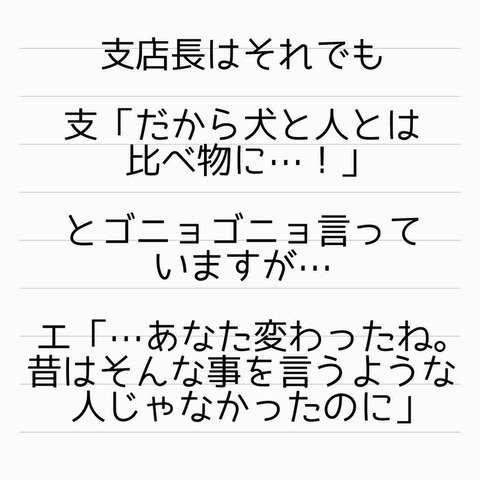 支店長はそれでも
支「だから犬と人とは
比べ物に…！」
とゴニョゴニョ言って
いますが…
エ「…あなた変わったね。
昔はそんな事を言うような
人じゃなかったのに」